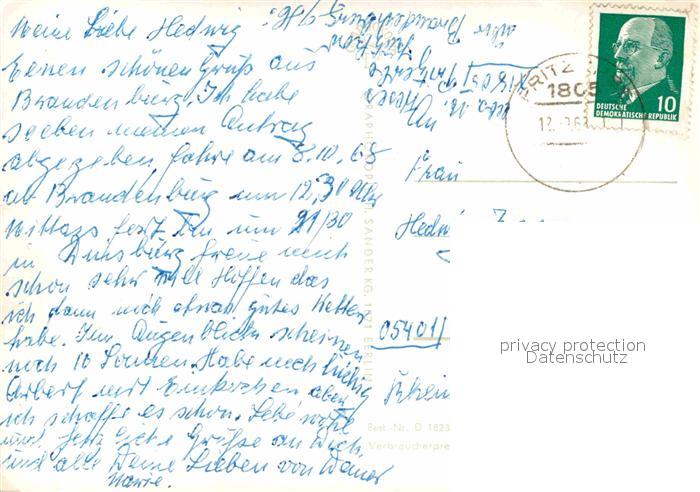 Meine Liebe Hedwig
Einen schönen Gruß aus
Brandenburg, Ich habe
soeben meinen Antrag
abgegeben, fahre am 8.10.68
ab Brandenburg um 12,30 Uhr
Mittags fort bin um 21/30
in Duisburg freue mich
schon sehr will Hoffen das
ich dann noch etwas gutes Wetter
habe. Im Augenblick scheinen
noch 10 Sonnen. Habe noch tüchtig
Arbeit mit Einkochen, aber
ich schaffe es schon. Lebe wohl
und Grüße an Dich
und alle Deine Lieben von Deiner
Marie.
An
Frau
Hedwi
05401
Rhein
FRITZ
1805
10
DEUTSCHE
DEMOKRATISCHE REPUBLIK
SANDER KG, 1071 BERLIN
Best.-Nr. D 1823
Verbraucherpre
privacy protection
Datenschutz